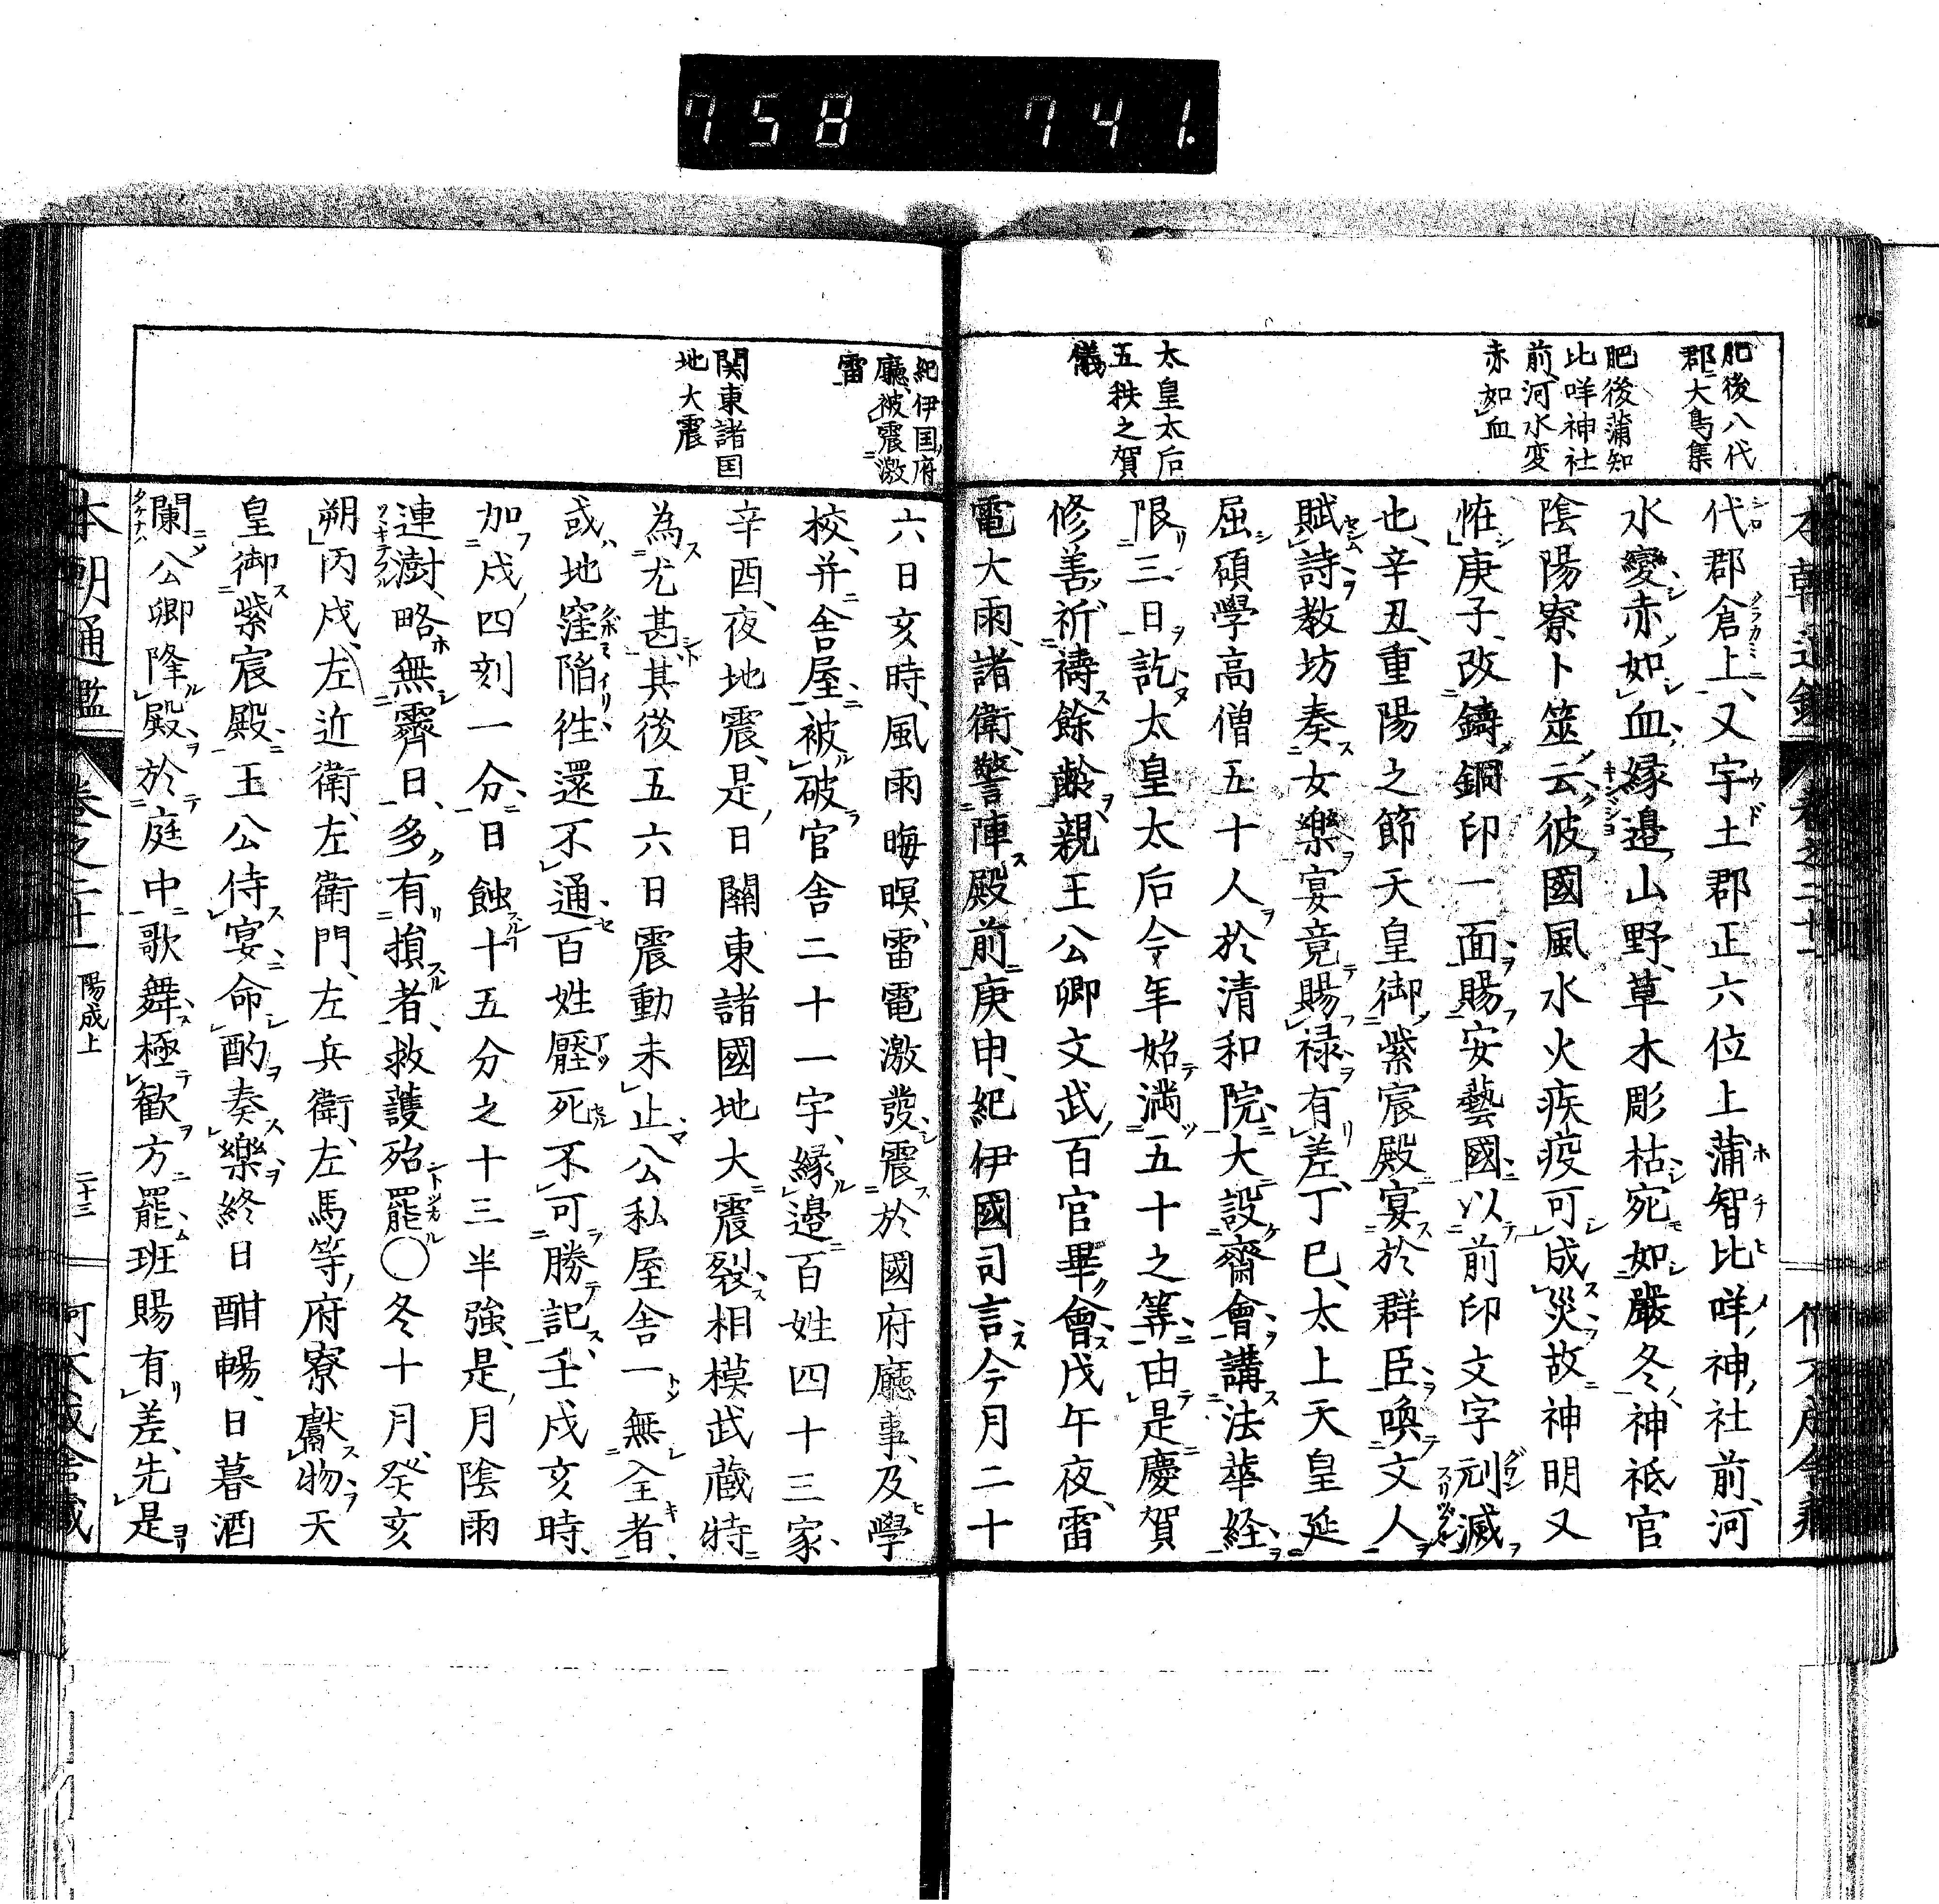 758 741.
肥後八代
郡ニ大鳥集
肥後蒲知
比咩神社
前河水変
赤如血
太皇太后
五秩之賀
儀
代郡倉上、又宇土郡正六位上蒲智比咩神社前、河
水變赤如血、縁邉山野、草木彫枯宛如嚴冬、神祇官
陰陽寮卜筮云、彼國風水火疾疫可成災、故神明又
恠、庚子、改鑄銅印一面賜安藝國、以前印文字刓滅
也、辛丑、重陽之節天皇御紫宸殿宴於群臣、喚文人
賦詩教坊奏女樂宴竟賜禄有差、丁巳、太上天皇延
屈碩學高僧五十人於清和院、大設齋會講法華経、
限三日訖、太皇太后今年始満五十之筭、由是慶賀
修善祈禱餘齡、親王公卿文武百官畢會、戊午夜、雷
電大雨、諸衛警陣殿前、庚申、紀伊國司言、今月二十
紀伊国府
廳被震激
雷
関東諸国
地大震
六日亥時、風雨晦暝、雷電激發、震於國府廳事、及學
校、并舎屋、被破官舎二十一宇、縁邉百姓四十三家、
辛酉、夜地震、是日關東諸國地大震裂、相模武藏特
為尤甚、其後五六日震動未止、公私屋舎一無全者、
或地窪陥、徃還不通、百姓壓死不可勝記、壬戌亥時、
加戍四刻一分、日蝕十五分之十三半強、是月陰雨
連澍、略無霽日、多有損者、救護殆罷〇冬十月、癸亥
朔丙戍、左近衛、左衛門、左兵衛、左馬等府寮獻物、天
皇御紫宸殿、王公侍宴、命酌奏樂、終日酣暢、日暮酒
闌、公卿降殿、於庭中歌舞、極歓方罷、班賜有差、先是
本朝通鑑 卷之二十一 陽成上 二十三